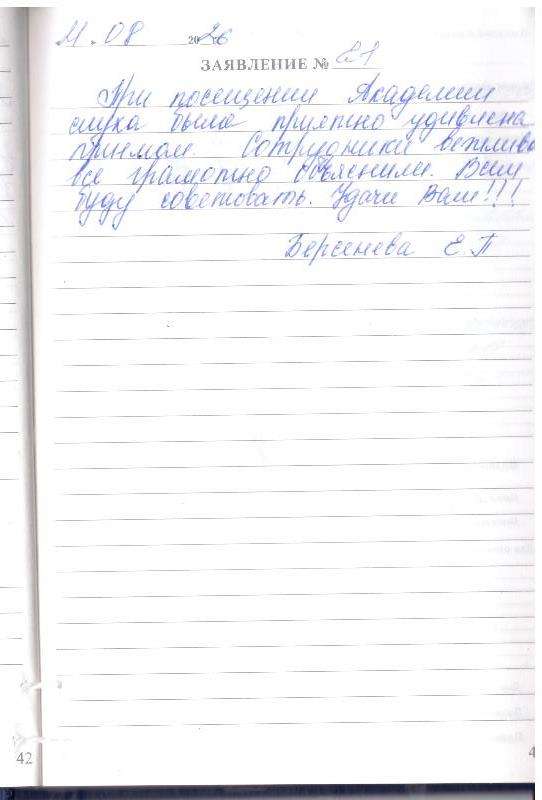 11.08 2026
ЗАЯВЛЕНИЕ № 81
При посещении Академии
слуха была приятно удивлена
приемом Сотрудники вежливо
все грамотно объяснили. Всем
буду советовать. Удачи Вам!!!
Берсенева Е.П
42
4